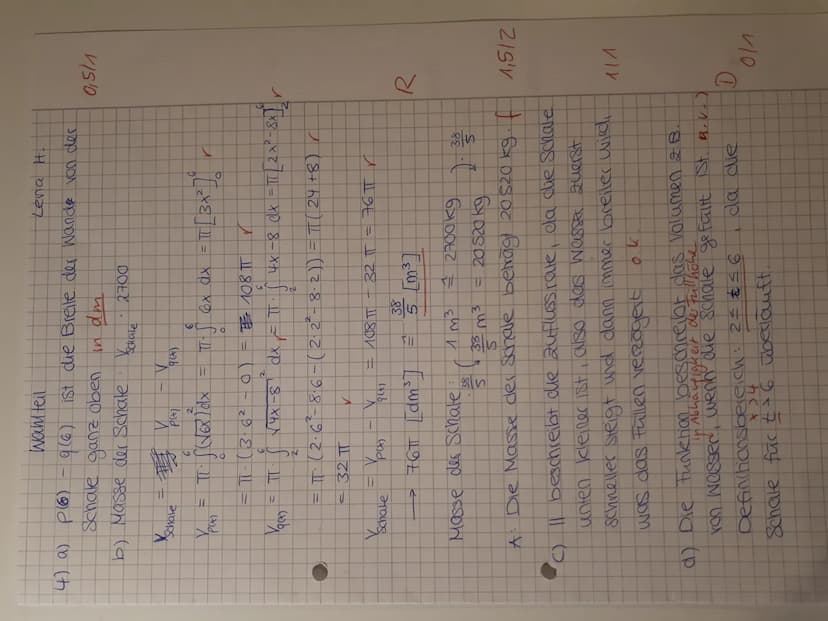 Wahlteil Lena H.
4) a) p(6) - q(6) ist die Breite der Wände von der
Schale ganz oben in dm 0,5/1
b) Masse der Schale: V Schale · 2700
V Schale = V p(x) - V q(x)
V p(x) = π · ∫₀⁶ (√6x)² dx = π · ∫₀⁶ 6x dx = π [3x²]₀⁶ r
= π · (3·6² - 0) = 108π r
V q(x) = π · ∫₂⁶ √4x-8² dx r = π · ∫₂⁶ 4x - 8 dx = π [2x² - 8x]₂⁶ r
= π · (2·6² - 8·6 - (2·2² - 8·2)) = π (24 + 8) r
= 32π r
V Schale = V p(x) - V q(x) = 108π - 32π = 76π r
→ 76π [dm³] = 38/5 [m³] R
Masse der Schale: 1 m³ ≙ 2700 kg
·38/5 ( 38/5 m³ = 20520 kg ) · 38/5
A: Die Masse der Schale beträgt 20520 kg. f 1,5/2
c) II beschreibt die Zuflussrate, da die Schale
unten kleiner ist, also das Wasser zuerst
schneller steigt und dann immer breiter wird,
was das Füllen verzögert ok 1/1
d) Die Funktion beschreibt das Volumen z.B.
in Abhängigkeit der Füllhöhe
von Wasser, wenn die Schale gefüllt ist
Definitionsbereich: 2 ≤ t ≤ 6, da die D
Schale für t > 6 überläuft. 0/1